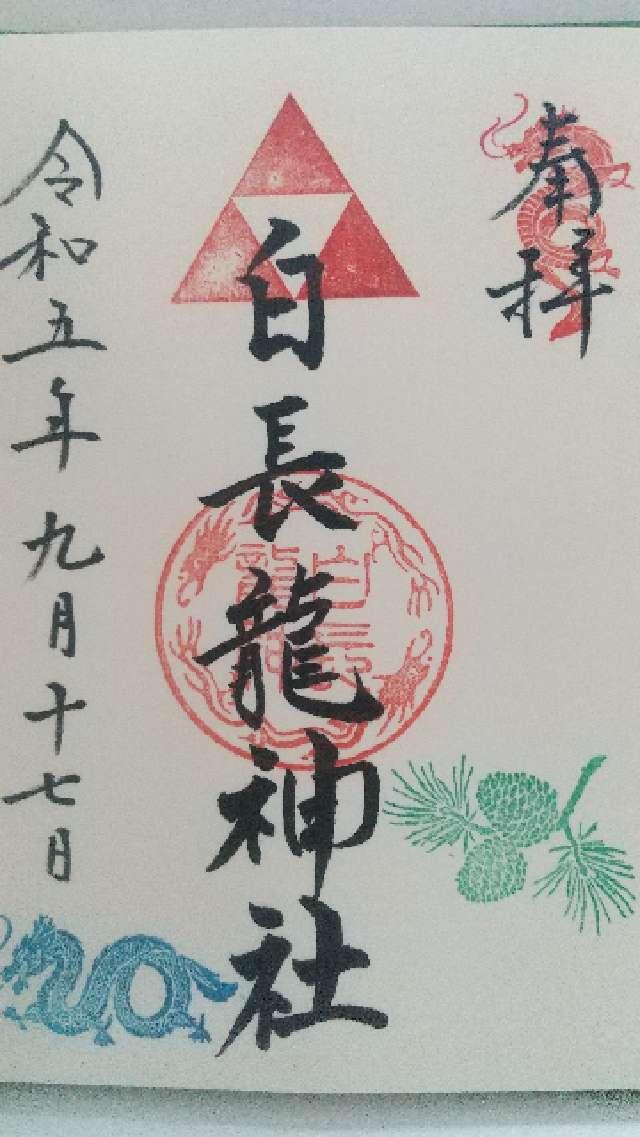 奉拝
白長龍神社
令和五年九月十七日
白長
龍